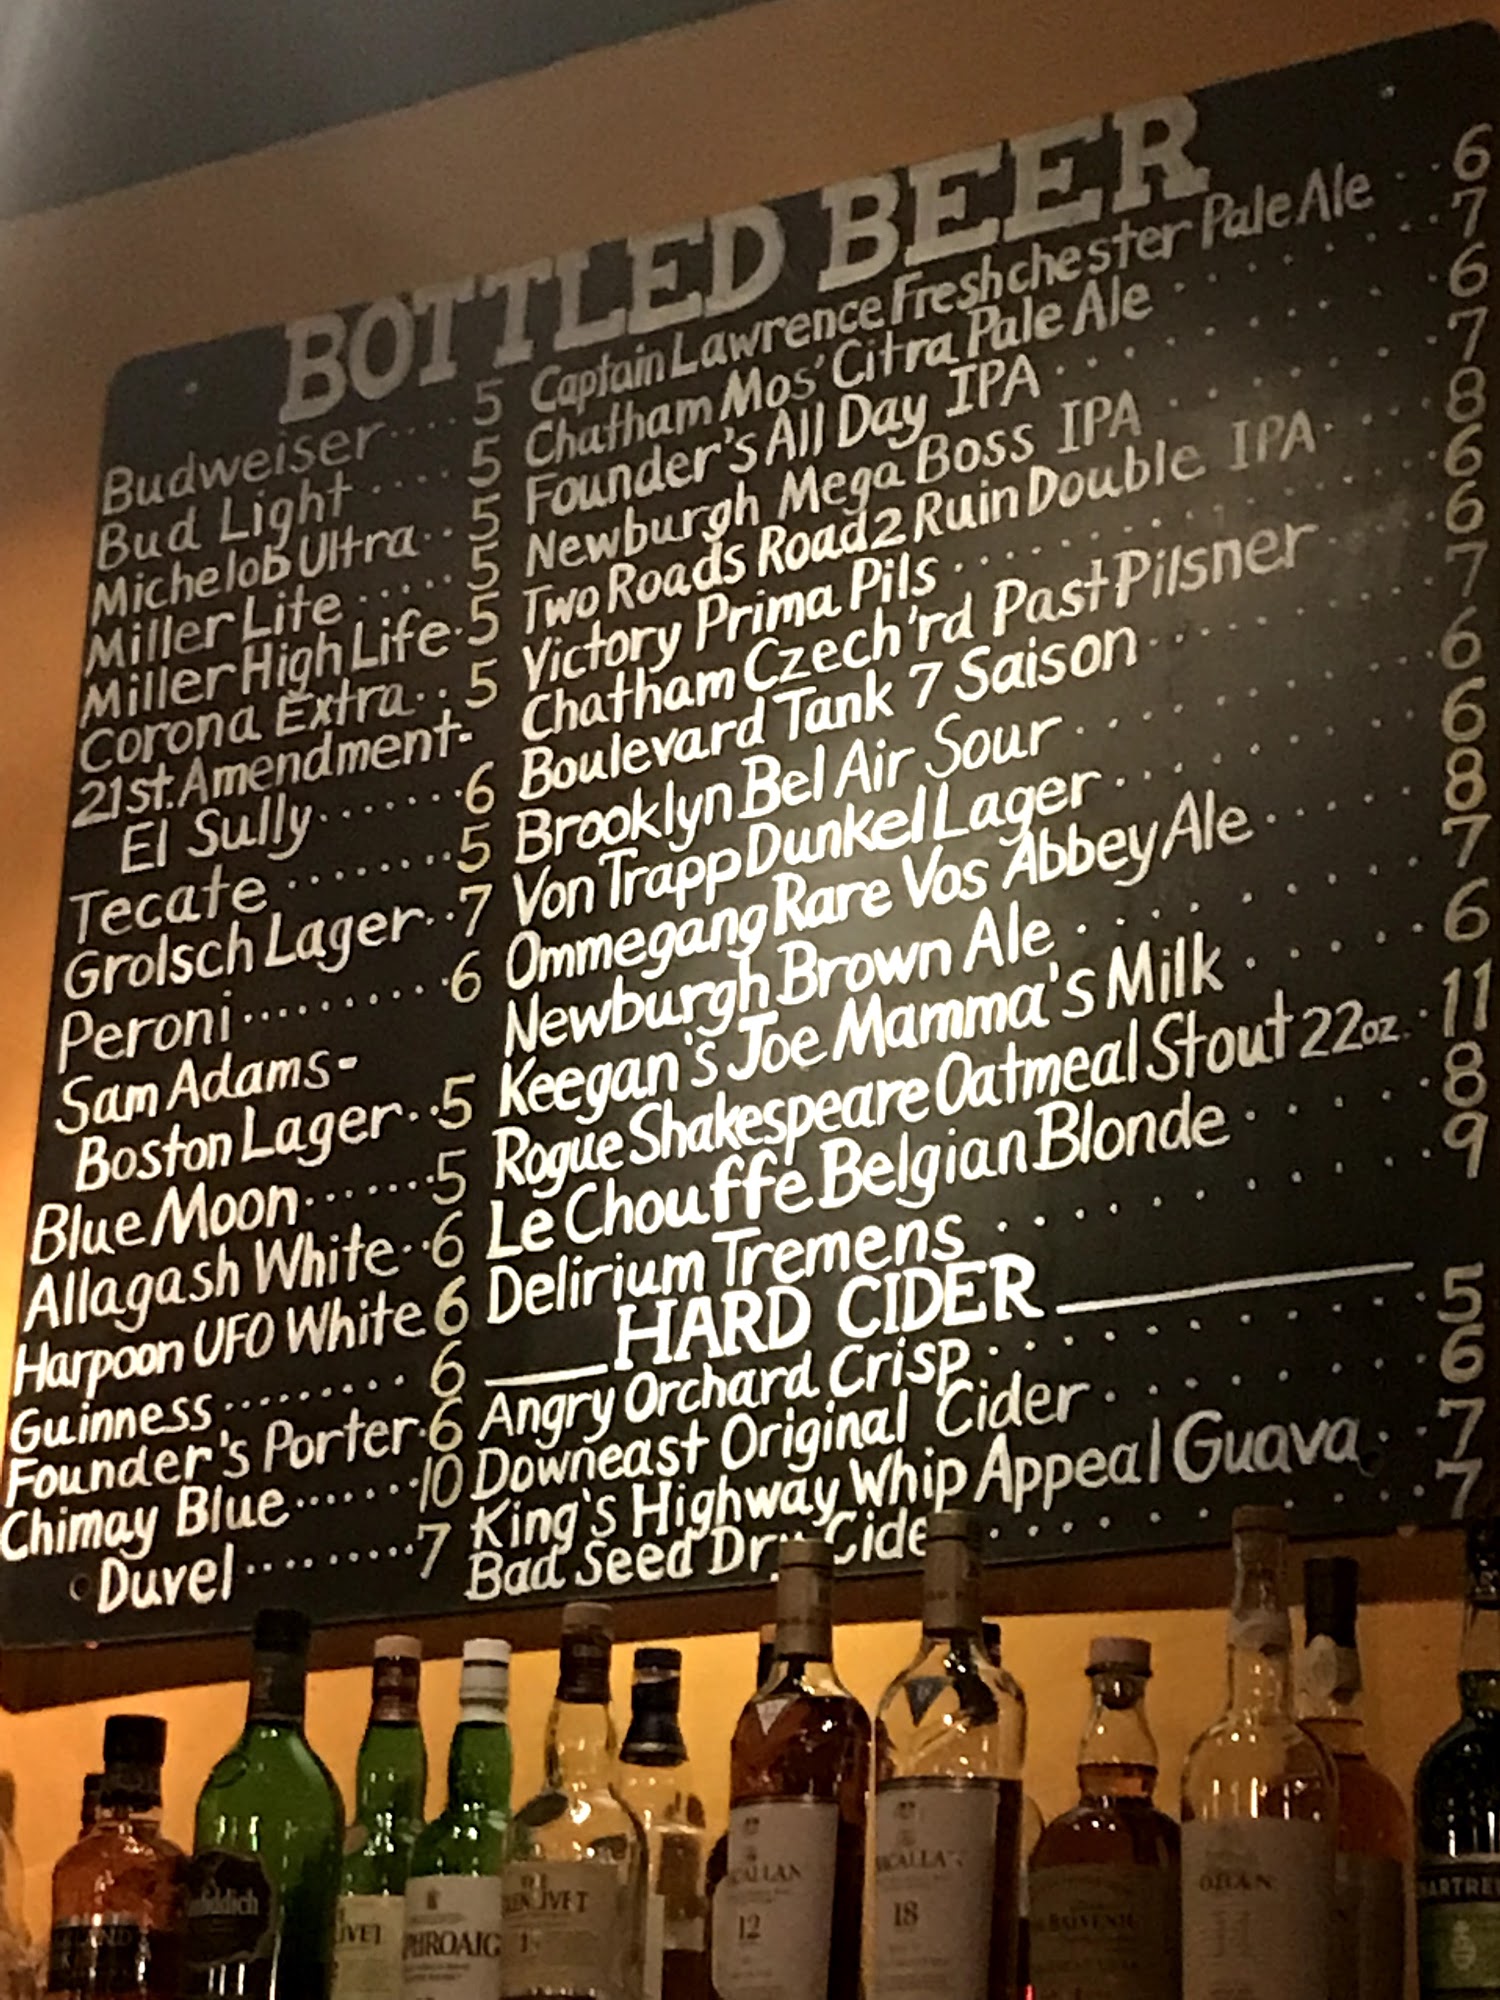 BOTTLED BEER
Budweiser.... 5
Bud Light .... 5
Michelob Ultra.. 5
Miller Lite ..... 5
Miller High Life. 5
Corona Extra.. 5
21st. Amendment-
El Sully....... 6
Tecate ....... 5
Grolsch Lager.. 7
Peroni......... 6
Sam Adams-
Boston Lager.. 5
Blue Moon....... 5
Allagash White.. 6
Harpoon UFO White 6
Guinness......... 6
Founder's Porter. 6
Chimay Blue....... 10
Duvel......... 7
Captain Lawrence Freshchester Pale Ale .. 6
Chatham Mos' Citra Pale Ale ....... 7
Founder's All Day IPA ......... 6
Newburgh Mega Boss IPA ....... 7
Two Roads Road 2 Ruin Double IPA.... 8
Victory Prima Pils ........... 6
Chatham Czech'rd Past Pilsner .... 6
Boulevard Tank 7 Saison ........ 7
Brooklyn Bel Air Sour ......... 6
Von Trapp Dunkel Lager ........ 6
Ommegang Rare Vos Abbey Ale ...... 8
Newburgh Brown Ale ......... 7
Keegan's Joe Mamma's Milk ...... 6
Rogue Shakespeare Oatmeal Stout 22oz. . 11
Le Chouffe Belgian Blonde ...... 8
Delirium Tremens .......... 9
HARD CIDER
Angry Orchard Crisp .......... 5
Downeast Original Cider ........ 6
King's Highway Whip Appeal Guava .. 7
Bad Seed Dry Cide ......... 7
VET
PHROAIG
LIVET
CALLAN
12
CALLA
18
BALVENIE
OBAN
ARTRE